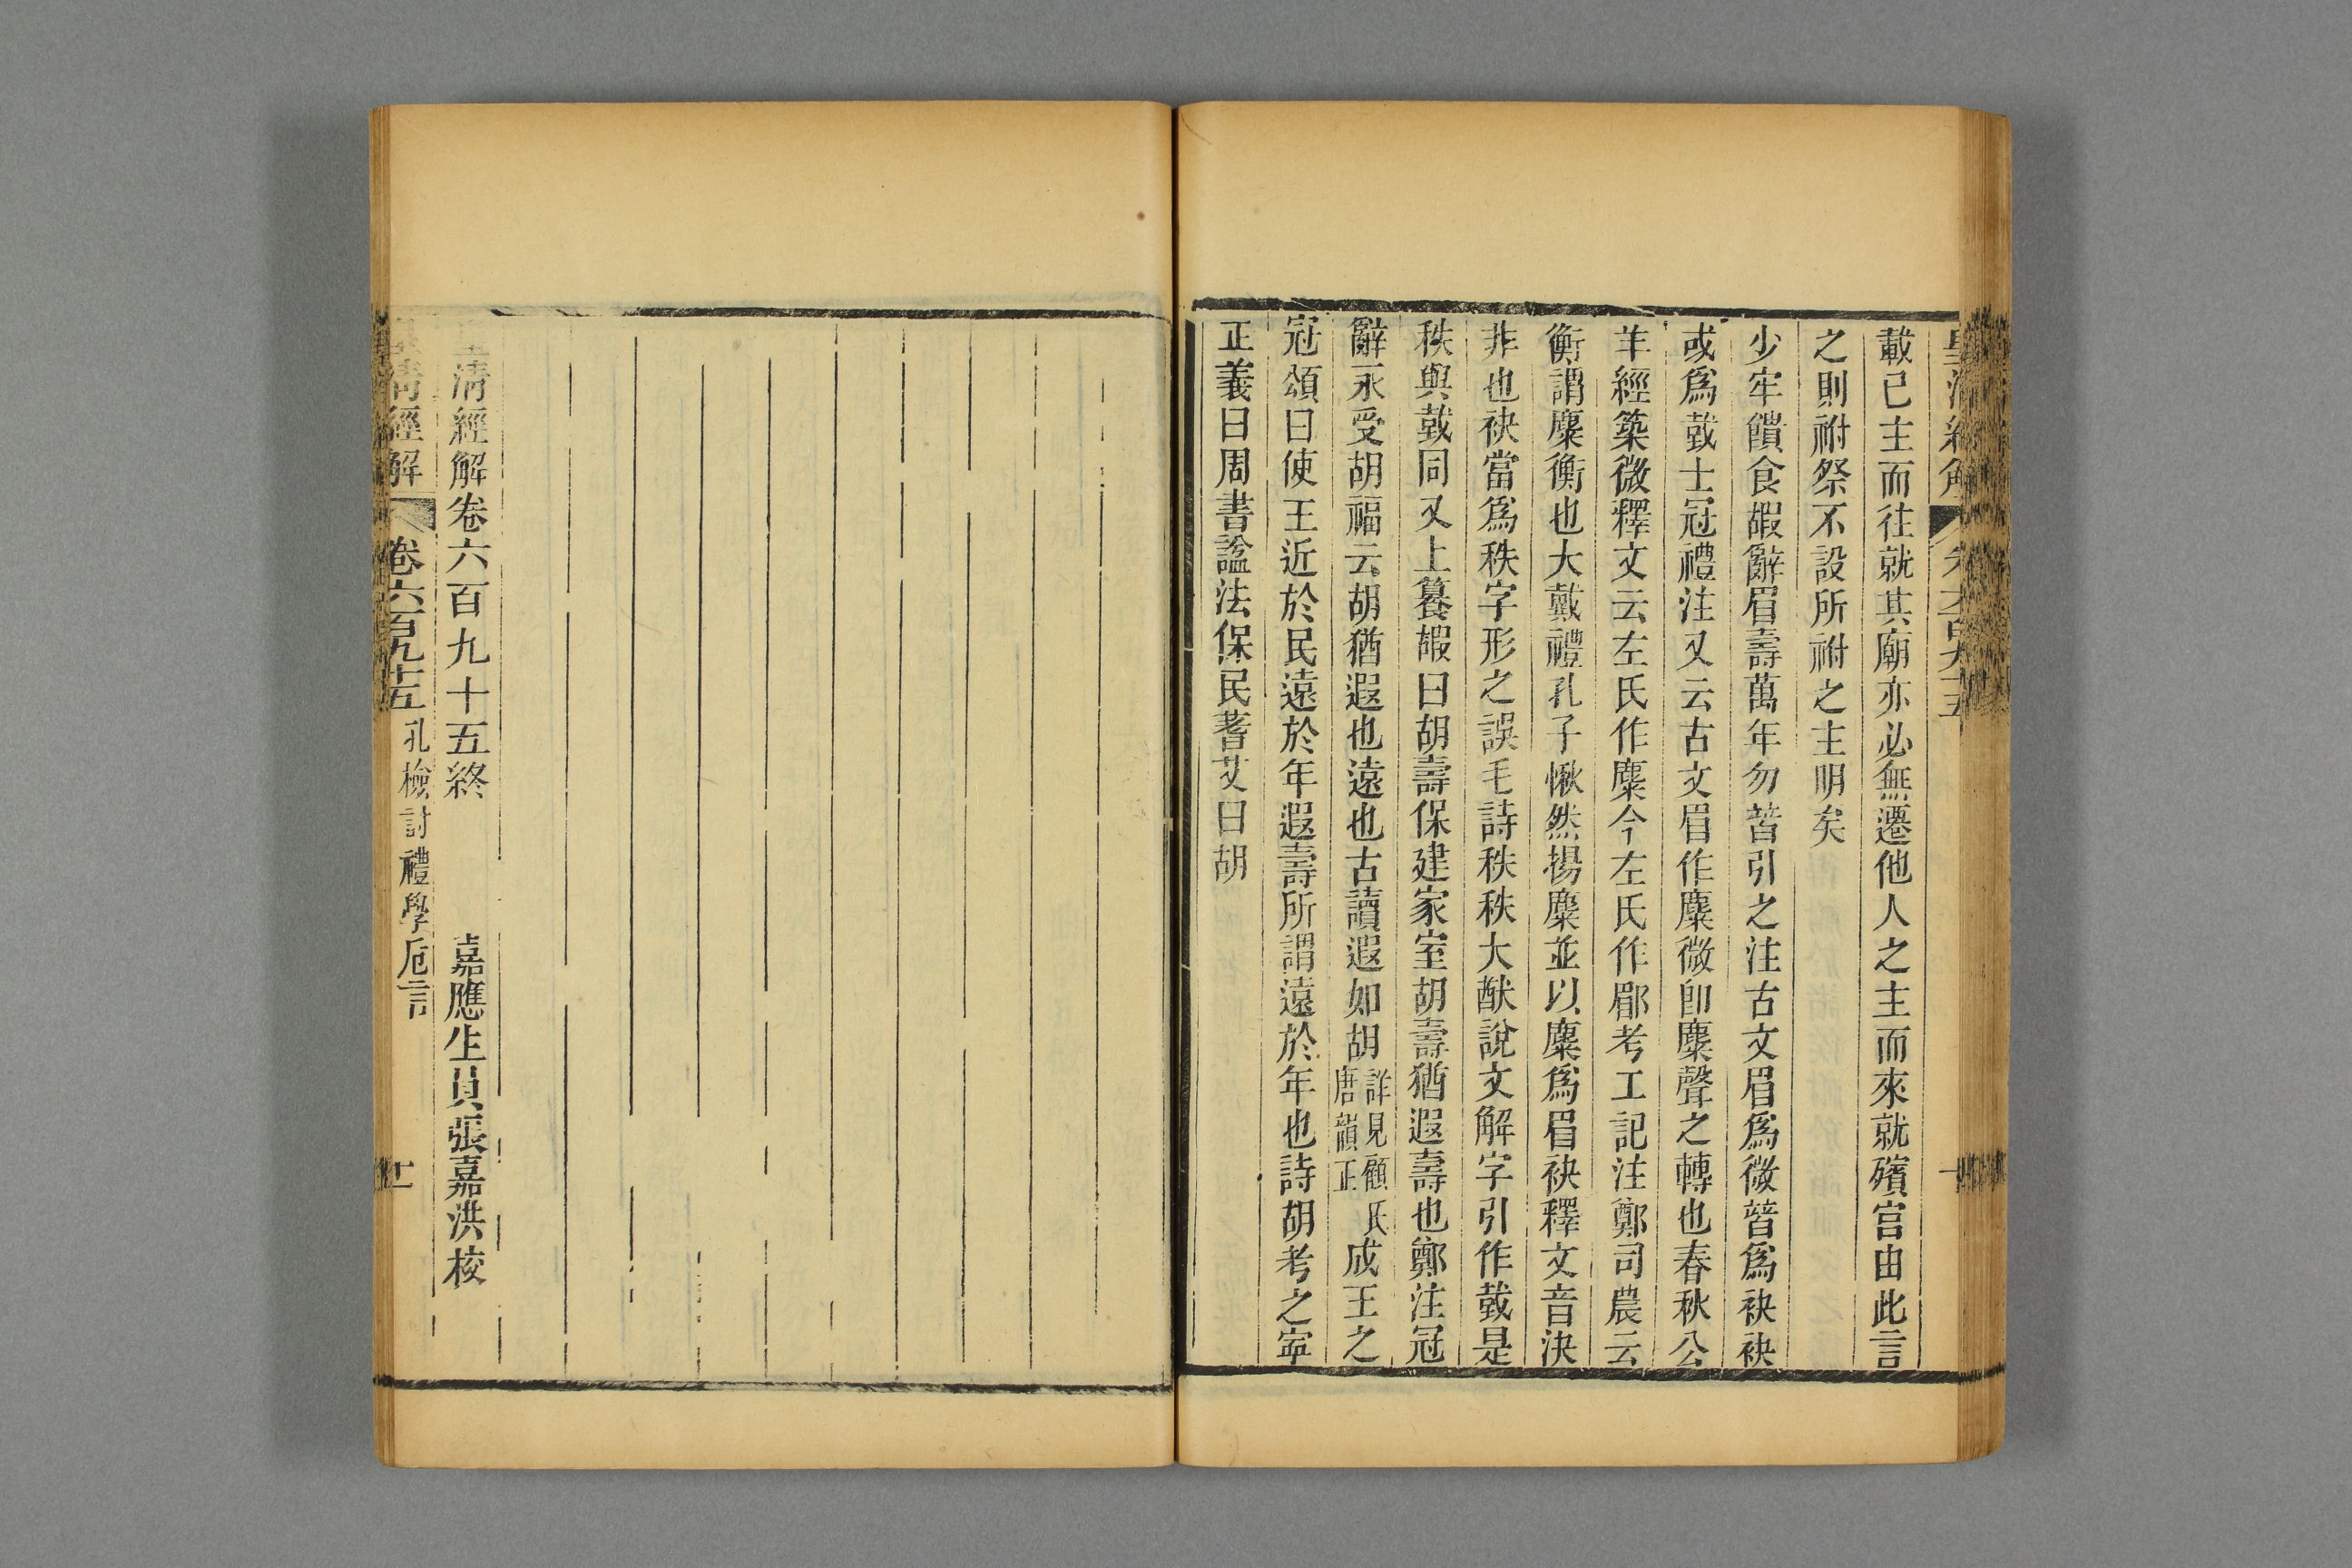 載已主而往就其廟亦必無遷他人之主而來就殯宫由此言
之則祔祭不設所祔之主明矣
少牢饋食嘏辭眉壽萬年勿替引之注古文眉爲微替爲袂袂
或爲臷士冠禮注又云古文眉作麋微卽麋聲之轉也春秋公
羊經築微釋文云左氏作麋今左氏作郿考工記注鄭司農云
衡謂麋衡也大戴禮孔子愀然揚麋並以麋爲眉袂釋文音決
非也袂當爲秩字形之誤毛詩秩秩大猷說文解字引作臷是
秩與臷同又上篹嘏曰胡壽保建家室胡壽猶遐壽也鄭注冠
辭永受胡福云胡猶遐也遠也古讀遐如胡詳見顧氏唐韻正成王之
冠頌曰使王近於民遠於年遐壽所謂遠於年也詩胡考之寧
正義曰周書諡法保民耆艾曰胡
清經解卷六百九十五終 嘉應生員張嘉洪校
清經解 卷六百九十五 孔檢討禮學卮言 十一